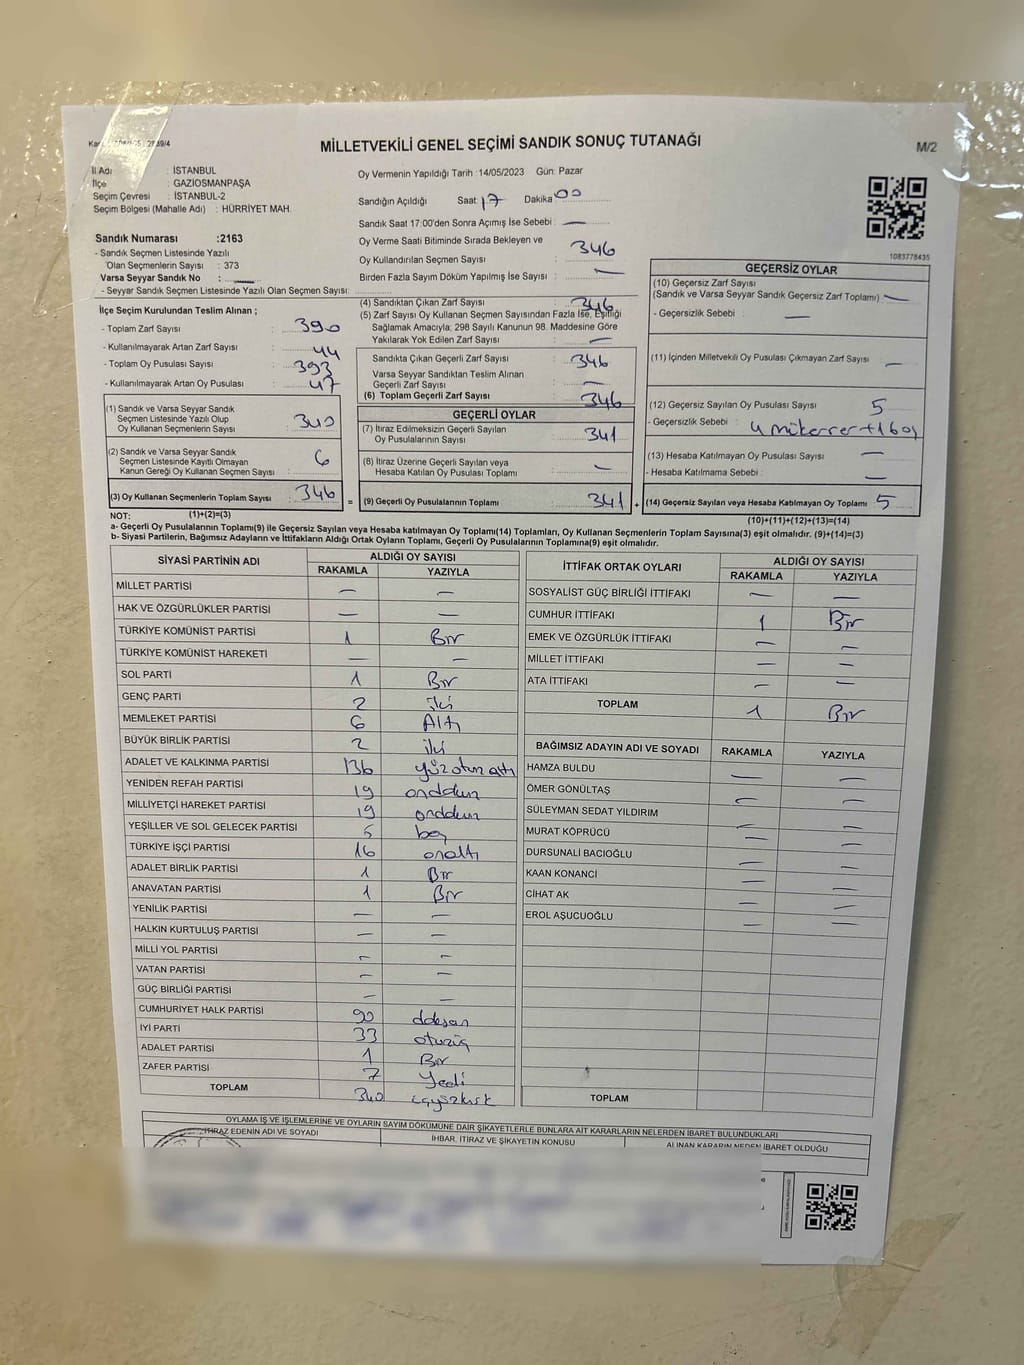 MİLLETVEKİLİ GENEL SEÇİMİ SANDIK SONUÇ TUTANAĞI
M/2
İl Adı : İSTANBUL
İlçe : GAZİOSMANPAŞA
Seçim Çevresi : İSTANBUL-2
Seçim Bölgesi (Mahalle Adı) : HÜRRİYET MAH.
Sandık Numarası :2163
- Sandık Seçmen Listesinde Yazılı
Olan Seçmenlerin Sayısı : 373
Varsa Seyyar Sandık No : —
- Seyyar Sandık Seçmen Listesinde Yazılı Olan Seçmen Sayısı:
İlçe Seçim Kurulundan Teslim Alınan ;
- Toplam Zarf Sayısı : 390
- Kullanılmayarak Artan Zarf Sayısı : 44
- Toplam Oy Pusulası Sayısı : 393
- Kullanılmayarak Artan Oy Pusulası : 47
(1) Sandık ve Varsa Seyyar Sandık
Seçmen Listesinde Yazılı Olup
Oy Kullanan Seçmenlerin Sayısı : 340
(2) Sandık ve Varsa Seyyar Sandık
Seçmen Listesinde Kayıtlı Olmayan
Kanun Gereği Oy Kullanan Seçmen Sayısı : 6
(3) Oy Kullanan Seçmenlerin Toplam Sayısı : 346 =
Oy Vermenin Yapıldığı Tarih : 14/05/2023 Gün: Pazar
Sandığın Açıldığı Saat 17 Dakika 00
Sandık Saat 17:00'den Sonra Açımış İse Sebebi : —
Oy Verme Saati Bitiminde Sırada Bekleyen ve
Oy Kullandırılan Seçmen Sayısı : 346
Birden Fazla Sayım Döküm Yapılmış İse Sayısı : —
(4) Sandıktan Çıkan Zarf Sayısı : 346
(5) Zarf Sayısı Oy Kullanan Seçmen Sayısından Fazla İse, Eşitliği
Sağlamak Amacıyla; 298 Sayılı Kanunun 98. Maddesine Göre
Yakılarak Yok Edilen Zarf Sayısı : —
Sandıkta Çıkan Geçerli Zarf Sayısı : 346
Varsa Seyyar Sandıktan Teslim Alınan
Geçerli Zarf Sayısı : —
(6) Toplam Geçerli Zarf Sayısı : 346
GEÇERLİ OYLAR
(7) İtiraz Edilmeksizin Geçerli Sayılan
Oy Pusulalarının Sayısı : 341
(8) İtiraz Üzerine Geçerli Sayılan veya
Hesaba Katılan Oy Pusulası Toplamı : —
(9) Geçerli Oy Pusulalarının Toplamı : 341 +
1083778435
GEÇERSİZ OYLAR
(10) Geçersiz Zarf Sayısı
(Sandık ve Varsa Seyyar Sandık Geçersiz Zarf Toplamı) : —
- Geçersizlik Sebebi : —
(11) İçinden Milletvekili Oy Pusulası Çıkmayan Zarf Sayısı : —
(12) Geçersiz Sayılan Oy Pusulası Sayısı : 5
- Geçersizlik Sebebi : 4 mükerrer+1 boş
(13) Hesaba Katılmayan Oy Pusulası Sayısı : —
- Hesaba Katılmama Sebebi : —
(14) Geçersiz Sayılan veya Hesaba Katılmayan Oy Toplamı : 5
NOT: (1)+(2)=(3)
(10)+(11)+(12)+(13)=(14)
a- Geçerli Oy Pusulalarının Toplamı(9) ile Geçersiz Sayılan veya Hesaba Katılmayan Oy Toplamı(14) Toplamları, Oy Kullanan Seçmenlerin Toplam Sayısına(3) eşit olmalıdır. (9)+(14)=(3)
b- Siyasi Partilerin, Bağımsız Adayların ve İttifakların Aldığı Ortak Oyların Toplamı, Geçerli Oy Pusulalarının Toplamına(9) eşit olmalıdır.
SİYASİ PARTİNİN ADI ALDIĞI OY SAYISI
RAKAMLA YAZIYLA
MİLLET PARTİSİ — —
HAK VE ÖZGÜRLÜKLER PARTİSİ — —
TÜRKİYE KOMÜNİST PARTİSİ 1 Bir
TÜRKİYE KOMÜNİST HAREKETİ — —
SOL PARTİ 1 Bir
GENÇ PARTİ 2 iki
MEMLEKET PARTİSİ 6 Altı
BÜYÜK BİRLİK PARTİSİ 2 iki
ADALET VE KALKINMA PARTİSİ 136 yüzotuzaltı
YENİDEN REFAH PARTİSİ 19 ondokuz
MİLLİYETÇİ HAREKET PARTİSİ 19 ondokuz
YEŞİLLER VE SOL GELECEK PARTİSİ 5 beş
TÜRKİYE İŞÇİ PARTİSİ 16 onaltı
ADALET BİRLİK PARTİSİ 1 Bir
ANAVATAN PARTİSİ 1 Bir
YENİLİK PARTİSİ — —
HALKIN KURTULUŞ PARTİSİ — —
MİLLİ YOL PARTİSİ — —
VATAN PARTİSİ — —
GÜÇ BİRLİĞİ PARTİSİ — —
CUMHURİYET HALK PARTİSİ 90 doksan
İYİ PARTİ 33 otuzüç
ADALET PARTİSİ 1 Bir
ZAFER PARTİSİ 7 Yedi
TOPLAM 340 üçyüzkırk
İTTİFAK ORTAK OYLARI ALDIĞI OY SAYISI
RAKAMLA YAZIYLA
SOSYALİST GÜÇ BİRLİĞİ İTTİFAKI — —
CUMHUR İTTİFAKI 1 Bir
EMEK VE ÖZGÜRLÜK İTTİFAKI — —
MİLLET İTTİFAKI — —
ATA İTTİFAKI — —
TOPLAM 1 Bir
BAĞIMSIZ ADAYIN ADI VE SOYADI RAKAMLA YAZIYLA
HAMZA BULDU — —
ÖMER GÖNÜLTAŞ — —
SÜLEYMAN SEDAT YILDIRIM — —
MURAT KÖPRÜCÜ — —
DURSUNALİ BACIOĞLU — —
KAAN KONANCİ — —
CİHAT AK — —
EROL AŞUCUOĞLU — —
TOPLAM
OYLAMA İŞ VE İŞLEMLERİNE VE OYLARIN SAYIM DÖKÜMÜNE DAİR ŞİKAYETLERLE BUNLARA AİT KARARLARIN NELERDEN İBARET BULUNDUKLARI
İTİRAZ EDENİN ADI VE SOYADI İHBAR, İTİRAZ VE ŞİKAYETİN KONUSU ALINAN KARARIN NEDEN İBARET OLDUĞU